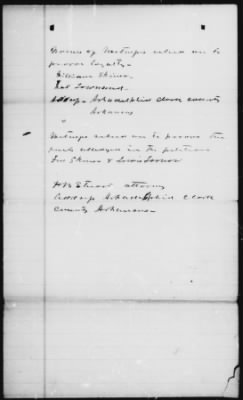 Names of Witnesses relied on to
prove loyalty.
William Skinner
Nat Townsend.
Address Arkadelphia Clark county
Arkansas
"
Witnesses relied on to prove the
facts alleged in the petition
Skinner &
H B Stuart attorney
address Arkadelphia Clark
County Arkansas